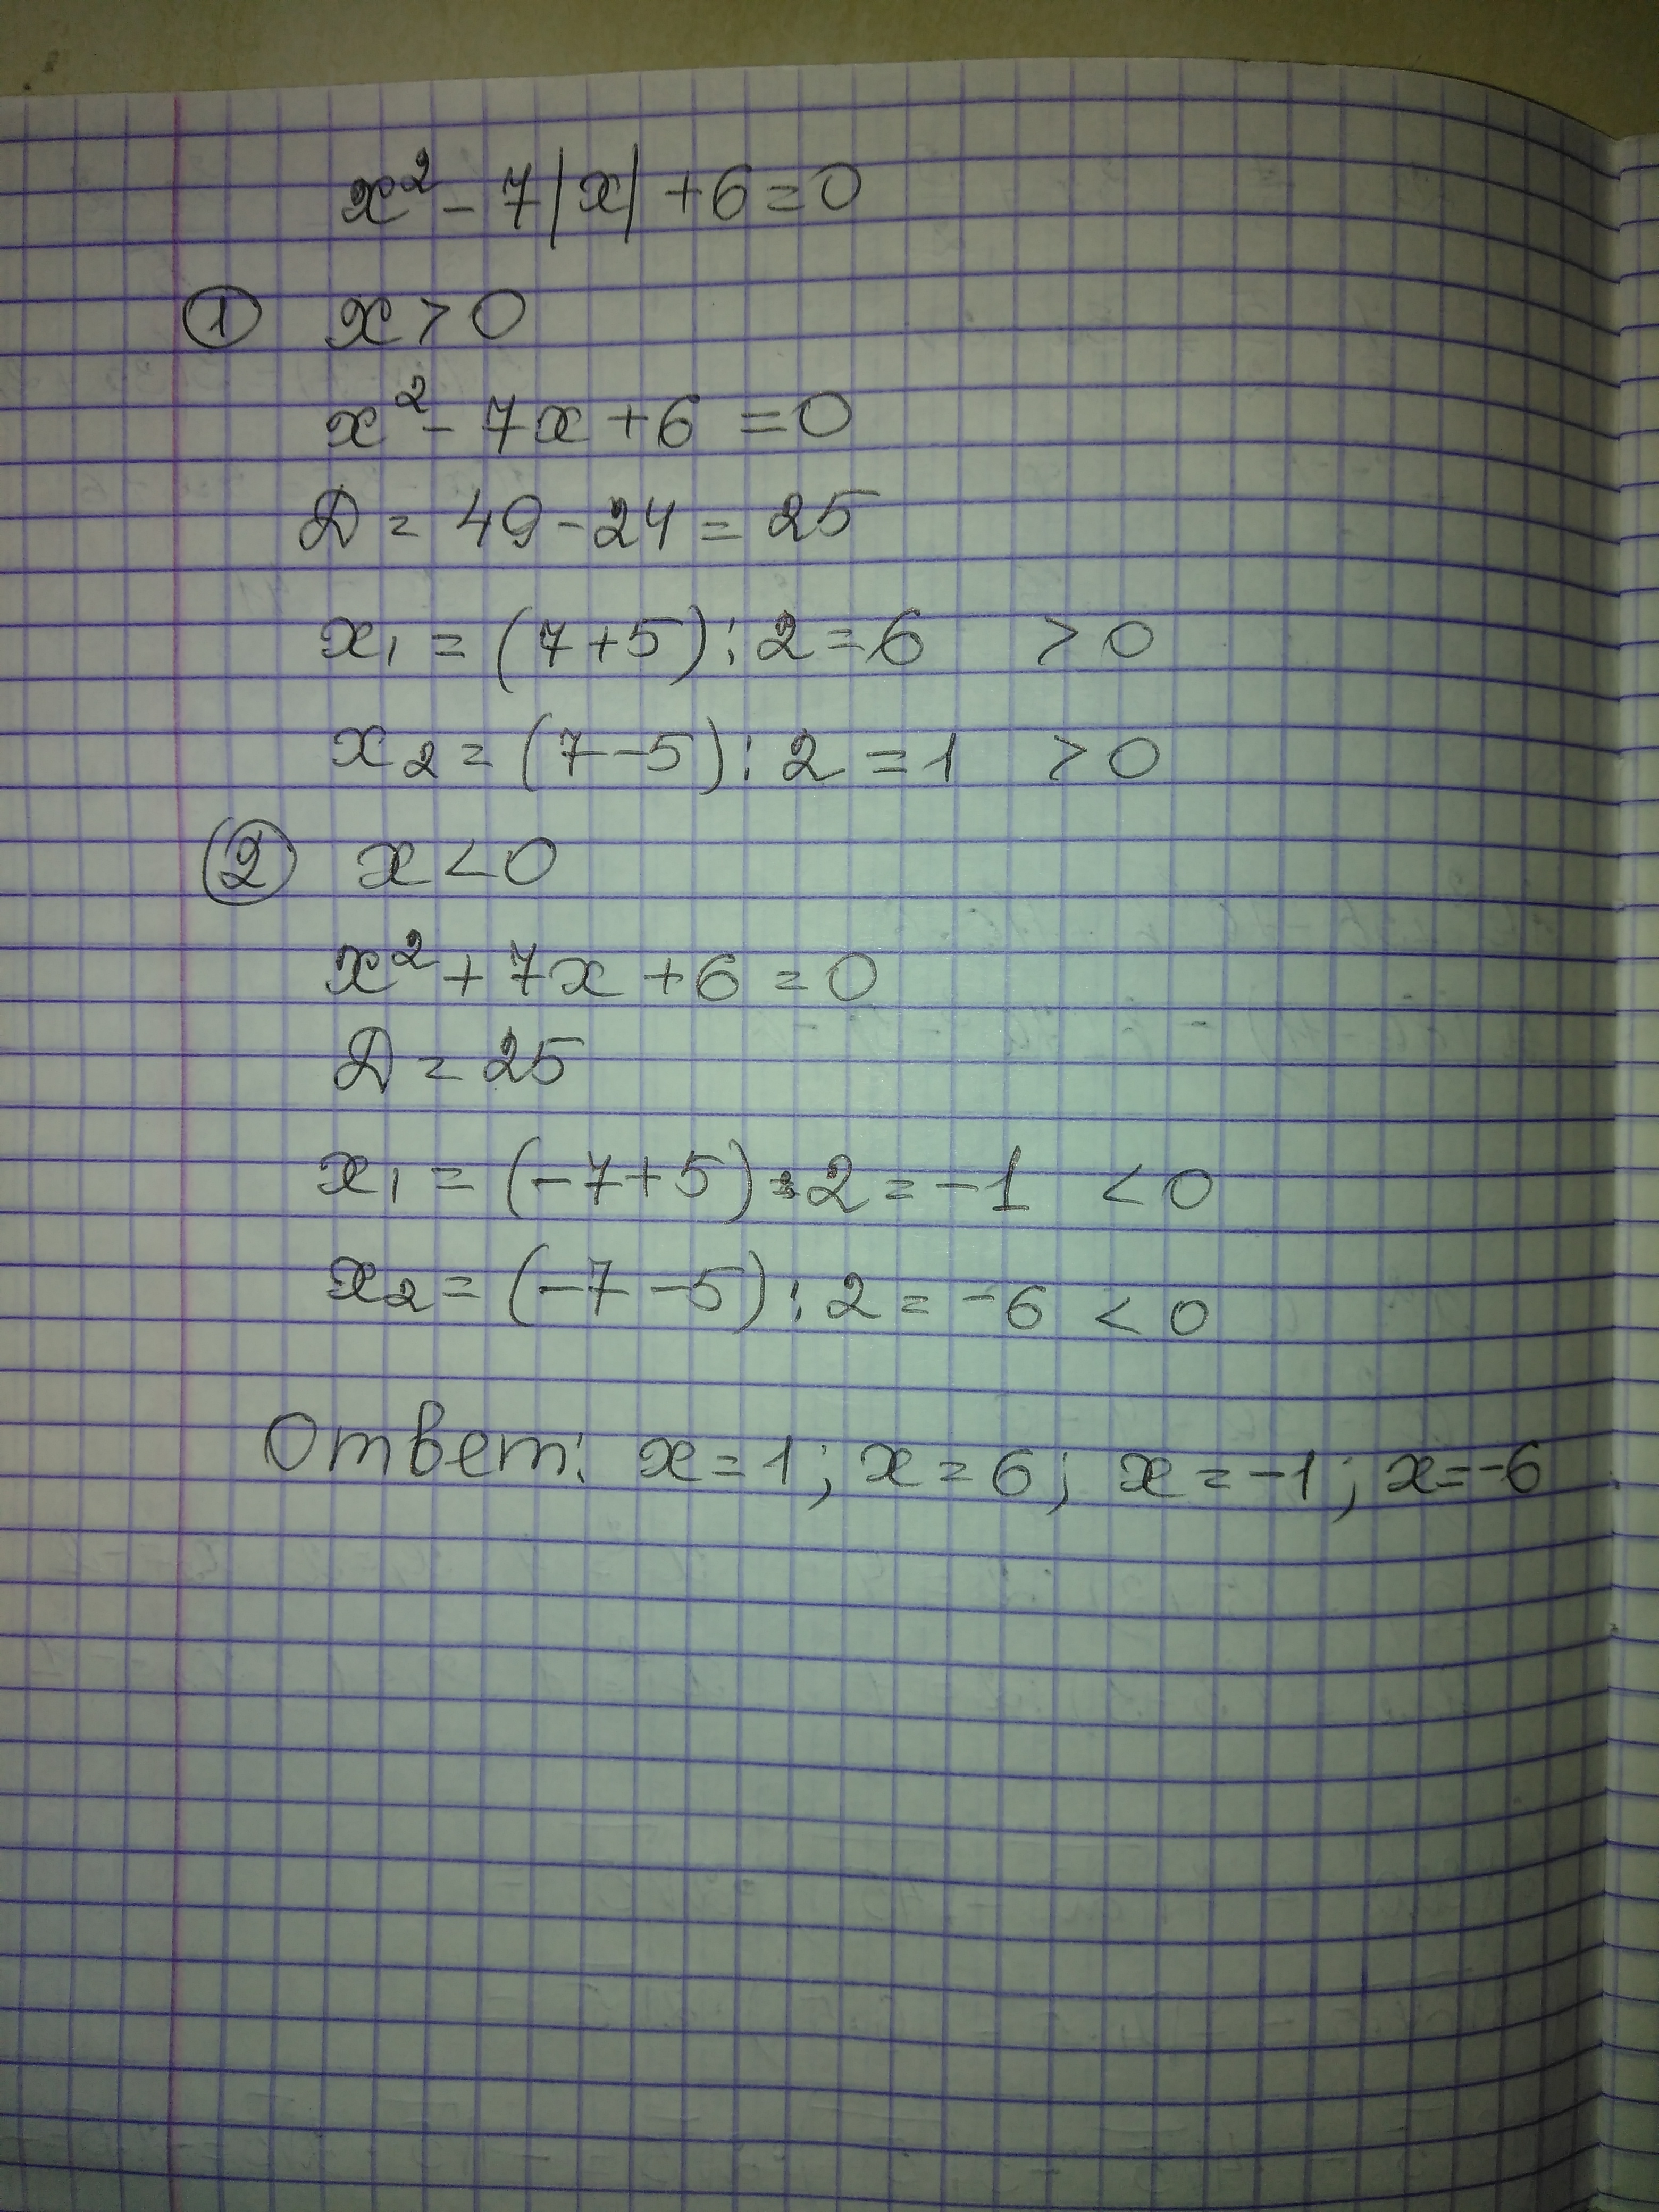 x² - 7|x| + 6 = 0
① x > 0
x² - 7x + 6 = 0
D = 49 - 24 = 25
x₁ = (7+5) : 2 = 6 > 0
x₂ = (7-5) : 2 = 1 > 0
② x < 0
x² + 7x + 6 = 0
D = 25
x₁ = (-7+5) : 2 = -1 < 0
x₂ = (-7-5) : 2 = -6 < 0
Ответ: x = 1; x = 6; x = -1; x = -6